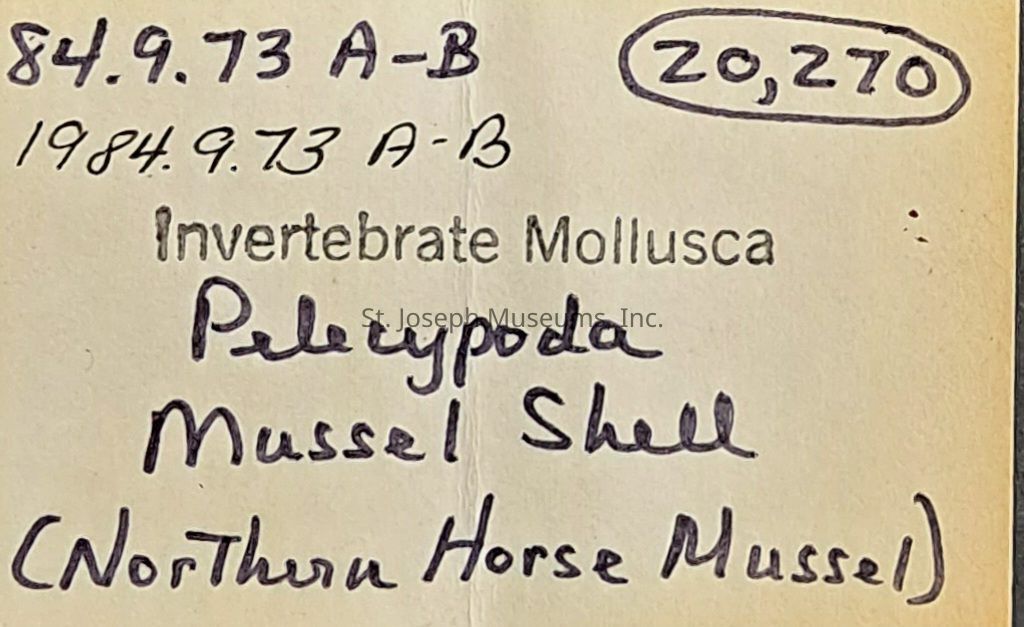 84.9.73 A-B
20,270
1984.9.73 A-B
Invertebrate Mollusca
Pelecypoda
St. Joseph Museums, Inc.
Mussel Shell
(Northern Horse Mussel)